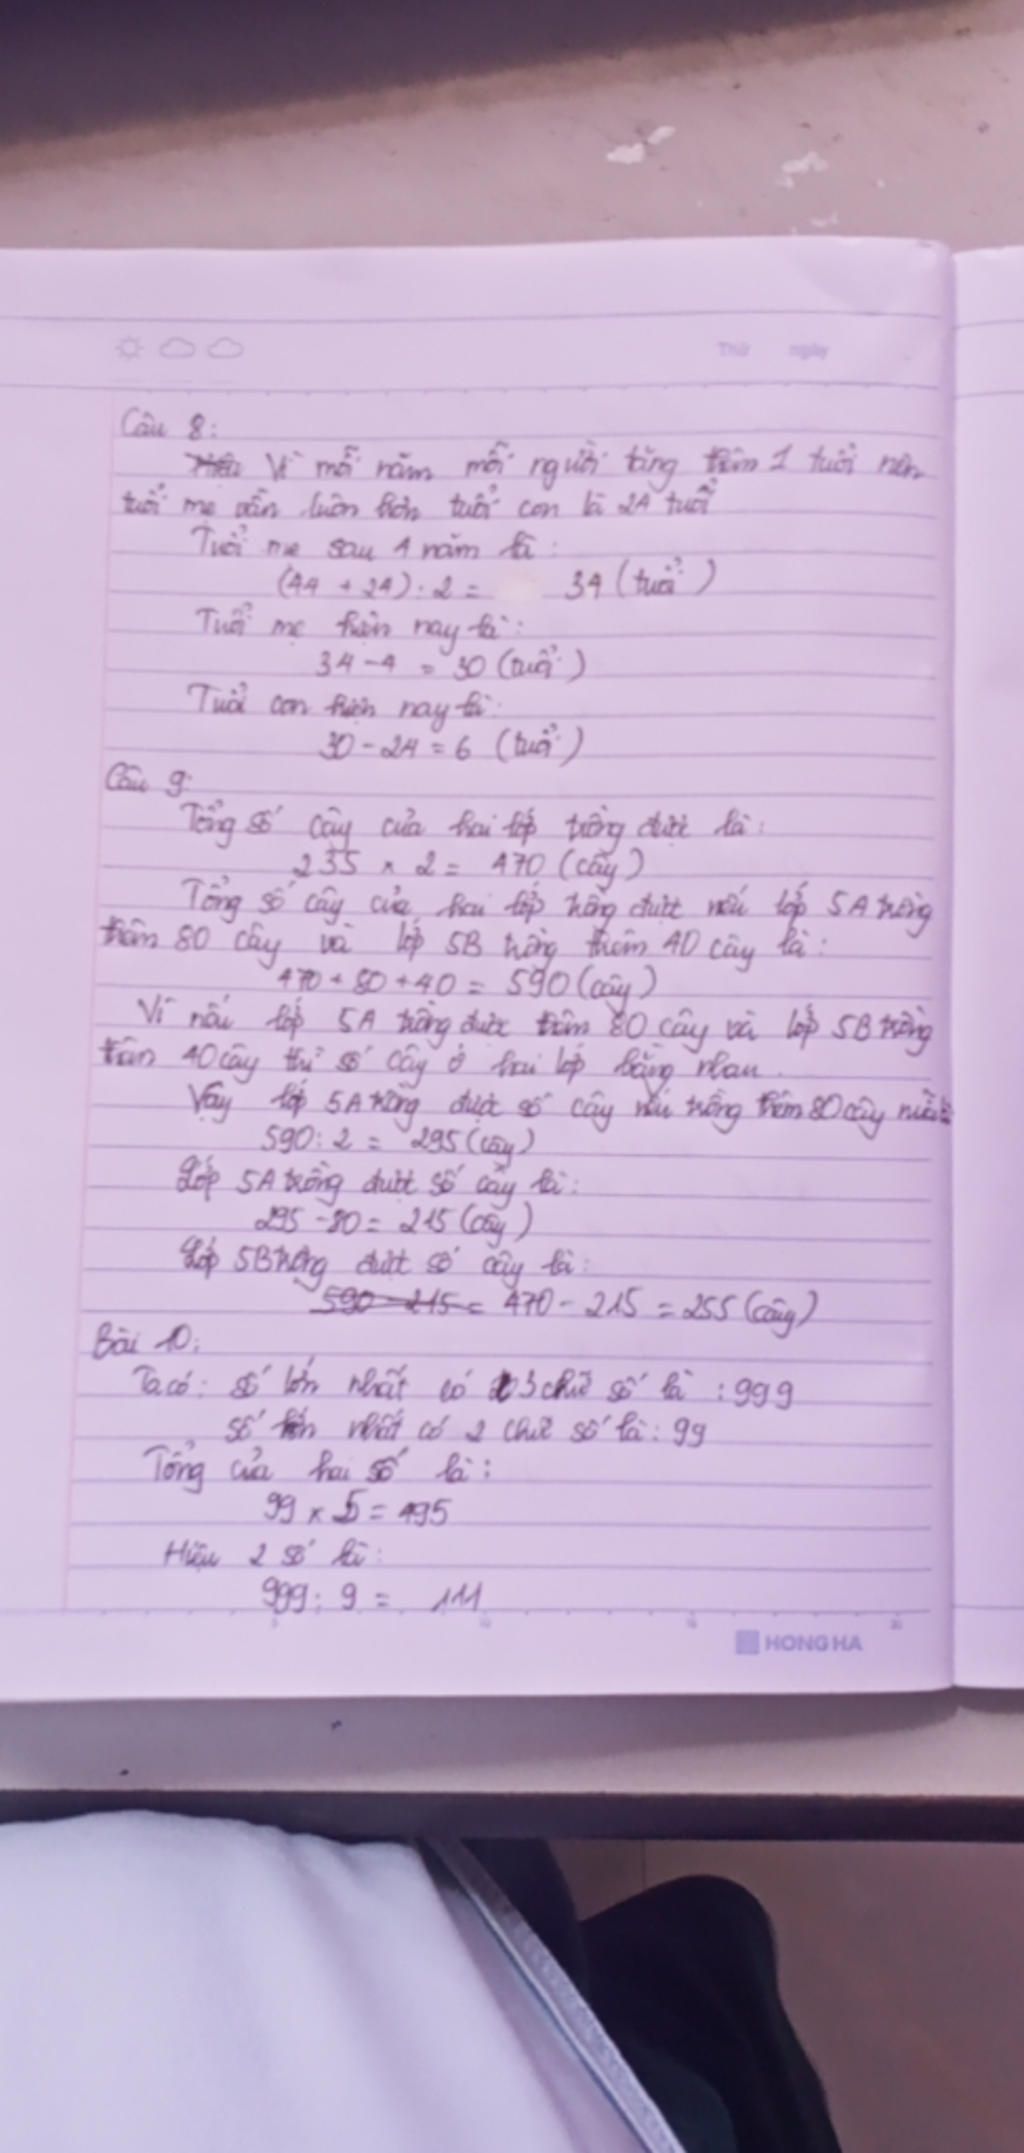 Thứ ngày
Câu 8:
Vì mỗi năm mỗi người tăng thêm 1 tuổi nên
tuổi mẹ vẫn luôn hơn tuổi con là 24 tuổi
Tuổi mẹ sau 4 năm là:
(44 + 24) : 2 = 34 (tuổi)
Tuổi mẹ hiện nay là:
34 - 4 = 30 (tuổi)
Tuổi con hiện nay là:
30 - 24 = 6 (tuổi)
Câu 9:
Tổng số cây của hai lớp trồng được là:
235 x 2 = 470 (cây)
Tổng số cây của hai lớp trồng được nếu lớp 5A trồng
thêm 80 cây và lớp 5B trồng thêm 40 cây là:
470 + 80 + 40 = 590 (cây)
Vì nếu lớp 5A trồng được thêm 80 cây và lớp 5B trồng
thêm 40 cây thì số cây ở hai lớp bằng nhau.
Vậy lớp 5A trồng được số cây nếu trồng thêm 80 cây nữa là:
590 : 2 = 295 (cây)
Lớp 5A trồng được số cây là:
295 - 80 = 215 (cây)
Lớp 5B trồng được số cây là:
590 - 215 = 470 - 215 = 255 (cây)
Bài 10:
Ta có: số lớn nhất có 3 chữ số là: 999
số lớn nhất có 2 chữ số là: 99
Tổng của hai số là:
99 x 5 = 495
Hiệu 2 số là:
999 : 9 = 111
5 10 15 20
HONG HA